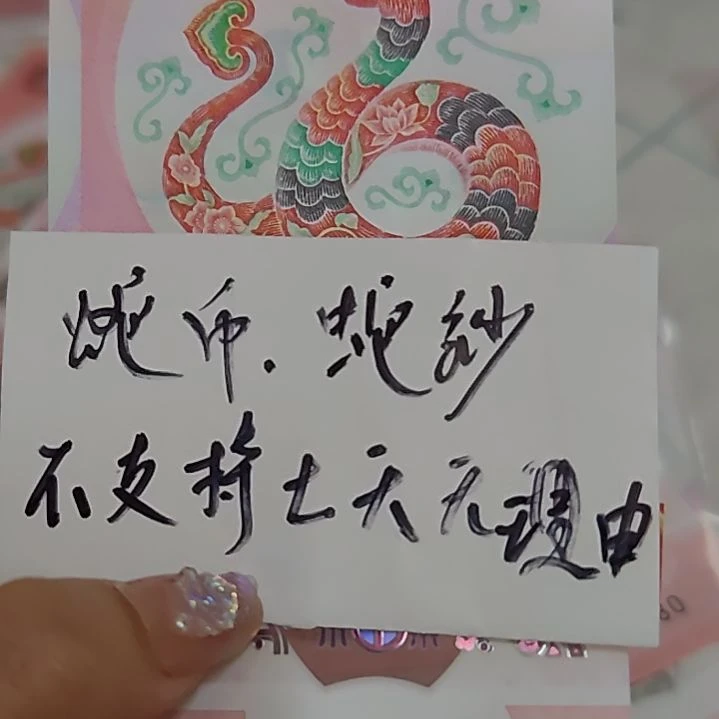 蛇币.蛇钞
不支持七天无理由
80